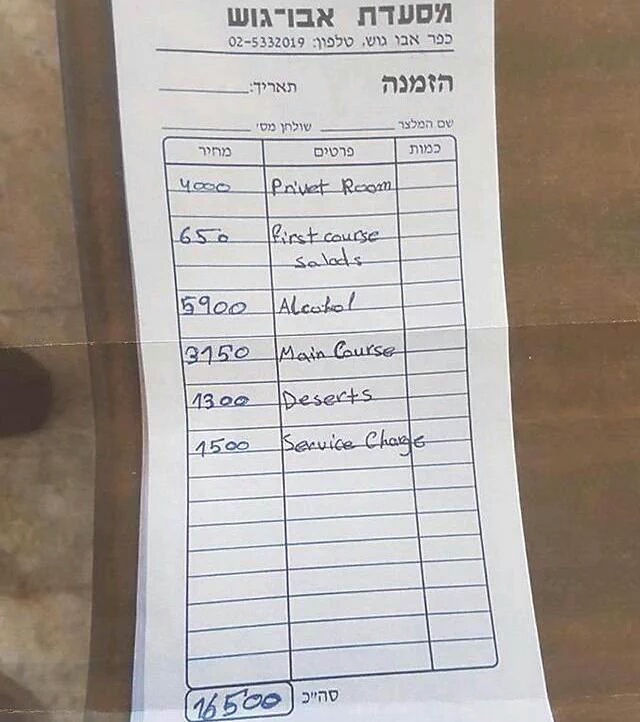 מסעדת אבו־גוש
כפר אבו גוש, טלפון: 02-5332019
הזמנה תאריך:
שם המלצר שולחן מס׳
כמות פרטים מחיר
Privet Room 4000
first course 650
salads
Alcohol 5900
Main Course 3150
Deserts 1300
Service Charge 1500
סה״כ 16500